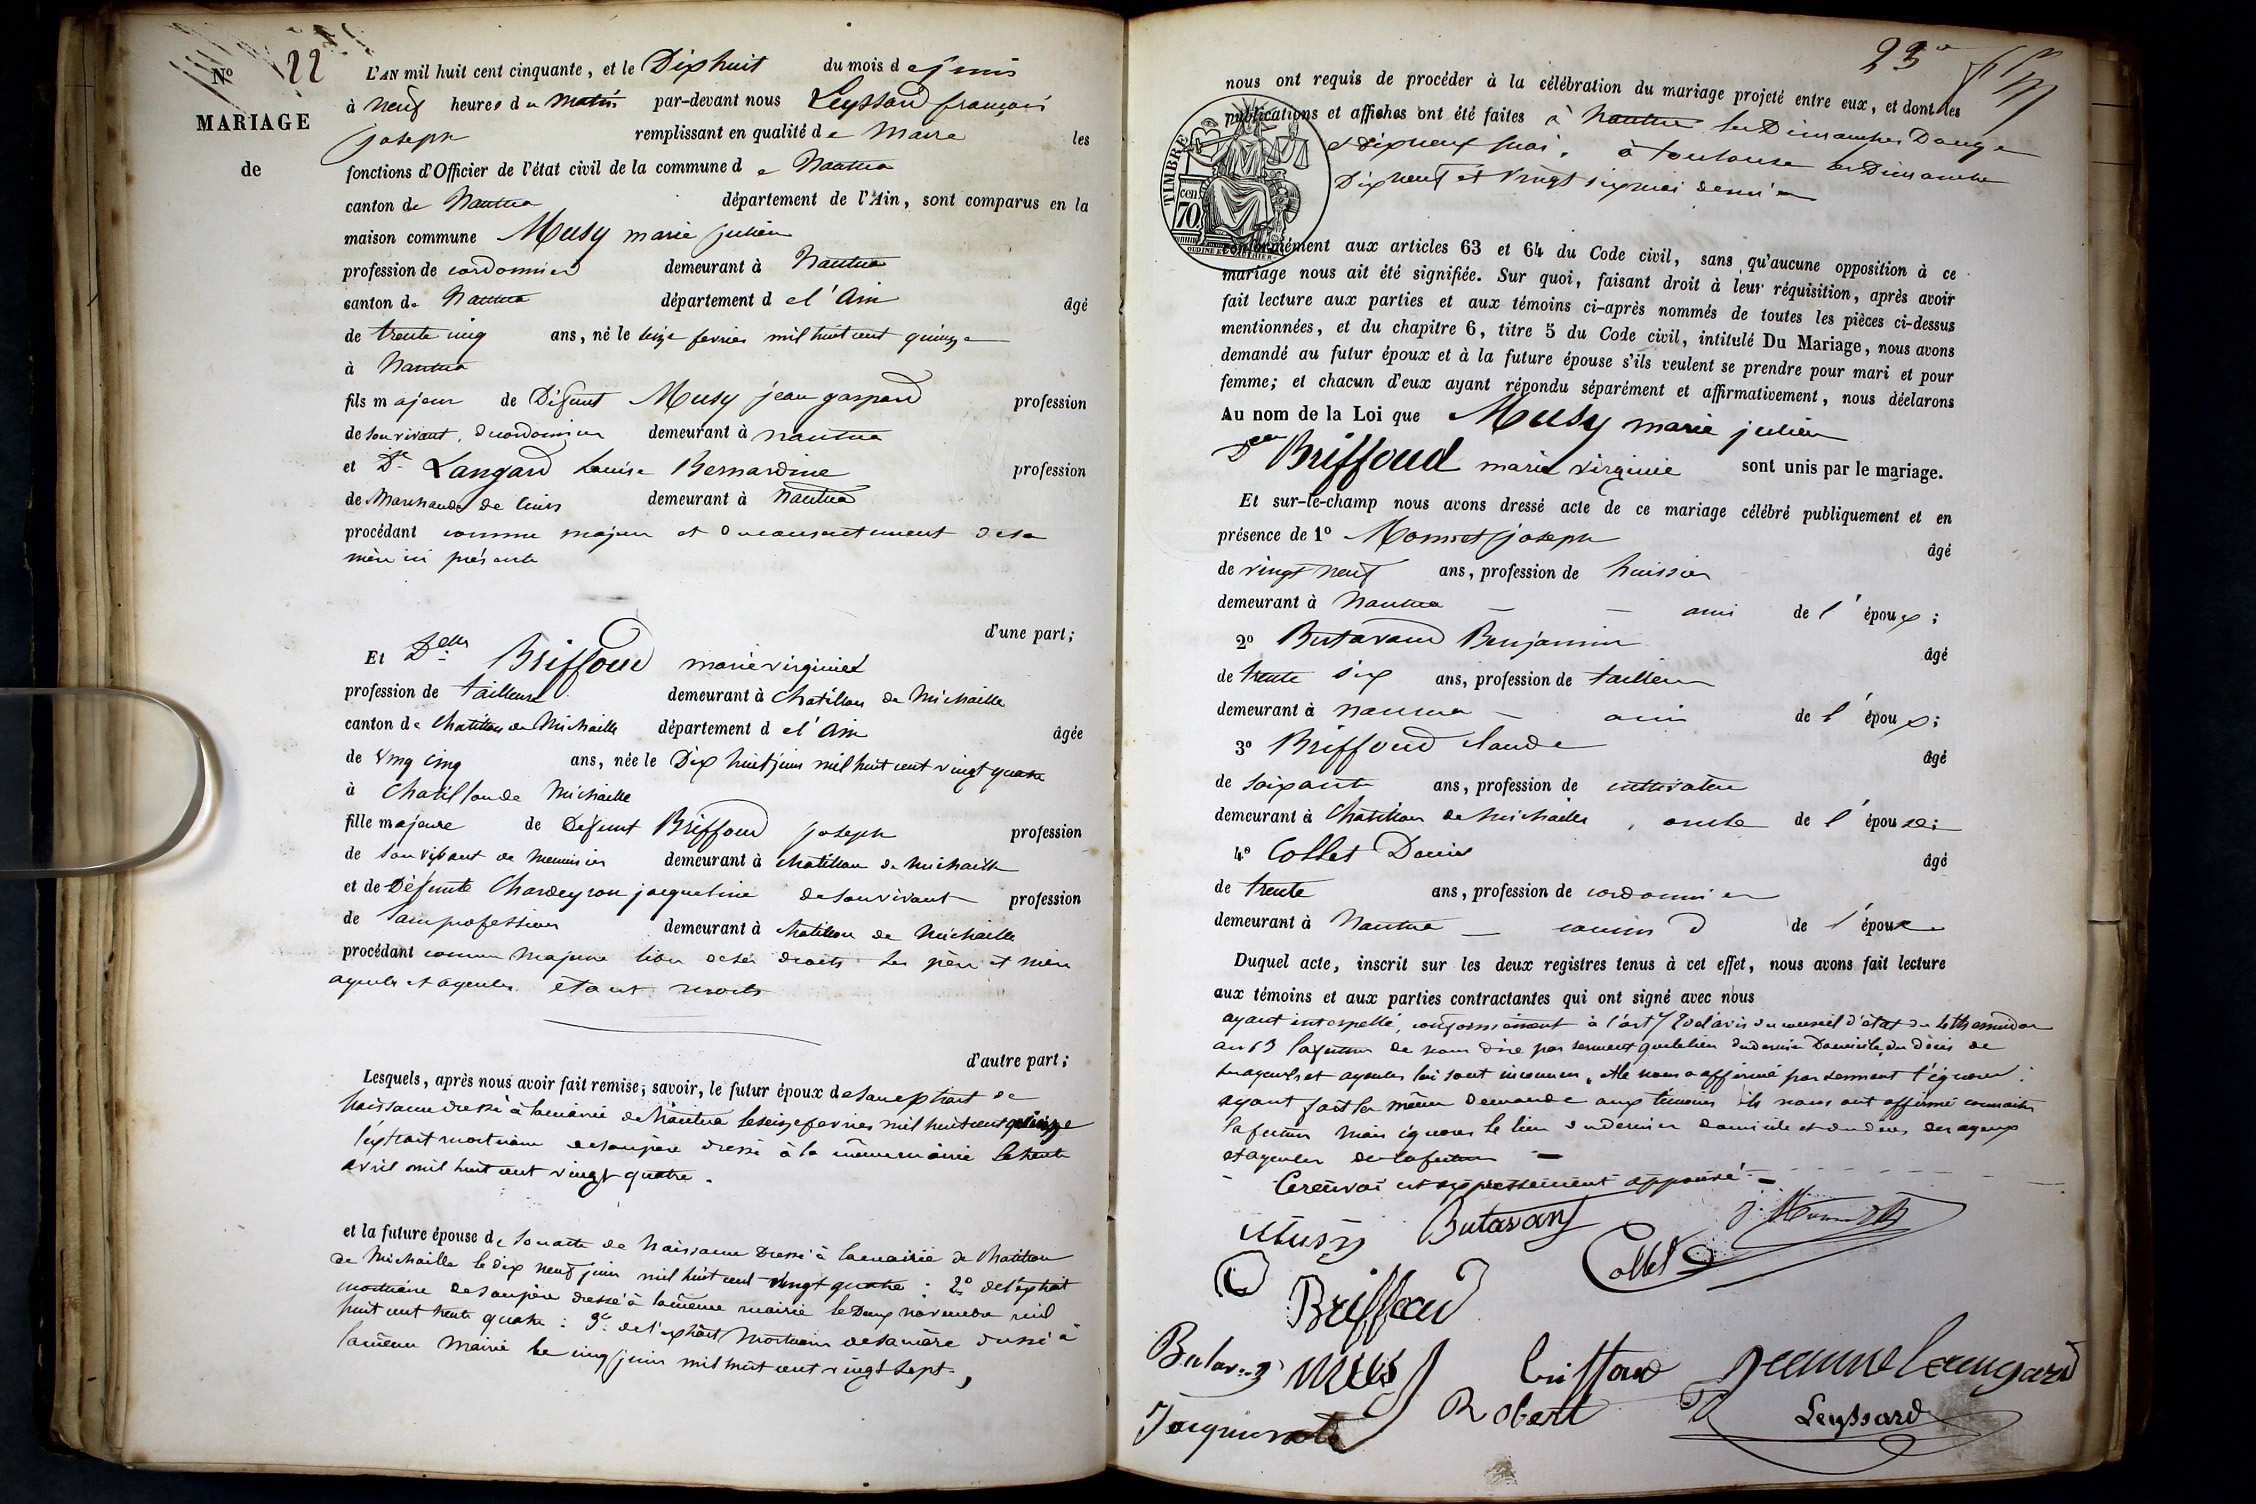 N° 22
MARIAGE
de
L'AN mil huit cent cinquante, et le Dix huit du mois de juin
à neuf heures du matin par-devant nous Leyssard françois
joseph remplissant en qualité de Maire les
fonctions d'Officier de l'état civil de la commune de Nantua
canton de Nantua département de l'Ain, sont comparus en la
maison commune Musy marie julien
profession de cordonnier demeurant à Nantua
canton de Nantua département de l'Ain âgé
de trente cinq ans, né le seize fevrier mil huit cent quinze
à Nantua
fils majeur de Défunt Musy jean gaspard profession
de son vivant, de cordonnier demeurant à nantua
et De Langard Louise Bernardine profession
de Marchande de cuirs demeurant à nantua
procédant comme majeur et du consentement de sa
mère ici présente
d'une part;
Et Delle Briffoud marie virginie
profession de tailleuse demeurant à Chatillon de Michaille
canton de Chatillon de Michaille département de l'Ain âgée
de Vingt cinq ans, née le Dix huit juin mil huit cent vingt quatre
à Chatillon de Michaille
fille majeure de Défunt Briffoud joseph profession
de son vivant de menuisier demeurant à chatillon de michaille
et de Défunte Chardeyron jacqueline de son vivant profession
de sans profession demeurant à chatillon de Michaille
procédant comme majeure libre de ses droits ses père et mère
ayeuls et ayeules étant morts
d'autre part;
Lesquels, après nous avoir fait remise, savoir, le futur époux de son extrait de
naissance dressé à la mairie de Nantua le seize fevrier mil huit cent quinze
l'extrait mortuaire de son père dressé à la même mairie le trente
avril mil huit cent vingt quatre.
et la future épouse de son acte de naissance Dressé à la mairie de Chatillon
de Michaille le dix neuf juin mil huit cent vingt quatre : 2° de l'extrait
mortuaire de son père dressé à la même mairie le Deux novembre mil
huit cent trente quatre : 3° de l'extrait Mortuaire de sa mère dressé à
la même Mairie le cinq juin mil huit cent vingt sept,
23e
nous ont requis de procéder à la célébration du mariage projeté entre eux, et dont les
publications et affiches ont été faites à Nantua les Dimanches Douze
et dix neuf Mai, à toulouse les Dimanche
Dix neuf et Vingt six mai dernier
TIMBRE
cen. 70.
OUDINÉ
conformément aux articles 63 et 64 du Code civil, sans qu'aucune opposition à ce
mariage nous ait été signifiée. Sur quoi, faisant droit à leur réquisition, après avoir
fait lecture aux parties et aux témoins ci-après nommés de toutes les pièces ci-dessus
mentionnées, et du chapitre 6, titre 5 du Code civil, intitulé Du Mariage, nous avons
demandé au futur époux et à la future épouse s'ils veulent se prendre pour mari et pour
femme; et chacun d'eux ayant répondu séparément et affirmativement, nous déclarons
Au nom de la Loi que Musy marie julien
Delle Briffoud marie virginie sont unis par le mariage.
Et sur-le-champ nous avons dressé acte de ce mariage célébré publiquement et en
présence de 1° Monnet joseph âgé
de vingt neuf ans, profession de huissier
demeurant à Nantua ami de l'époux;
2° Butavand Benjamin âgé
de trente six ans, profession de tailleur
demeurant à nantua ami de l'époux;
3° Briffoud claude âgé
de soixante ans, profession de cultivateur
demeurant à Chatillon de Michaille, oncle de l'épouse;
4° Collet Denis âgé
de trente ans, profession de cordonnier
demeurant à Nantua cousin de l'époux
Duquel acte, inscrit sur les deux registres tenus à cet effet, nous avons fait lecture
aux témoins et aux parties contractantes qui ont signé avec nous
ayant interpellé, conformément à l'avis du conseil d'état du 4 thermidor
an 13 la future de nous dire par serment que le lieu du dernier Domicile, du décès de
ses ayeuls et ayeules lui sont inconnus, elle nous a affirmé par serment l'ignorer :
ayant fait la même demande aux témoins ils nous ont affirmé connaitre
la future mais ignorer le lieu du dernier domicile et du décès des ayeux
et ayeules de la future
Ce renvoi est expressément approuvé
Musy Butavand J. Monnet
Collet
Briffoud
Butavand Musy briffoud Jeanne Langard
Jacquinod Robert Leyssard